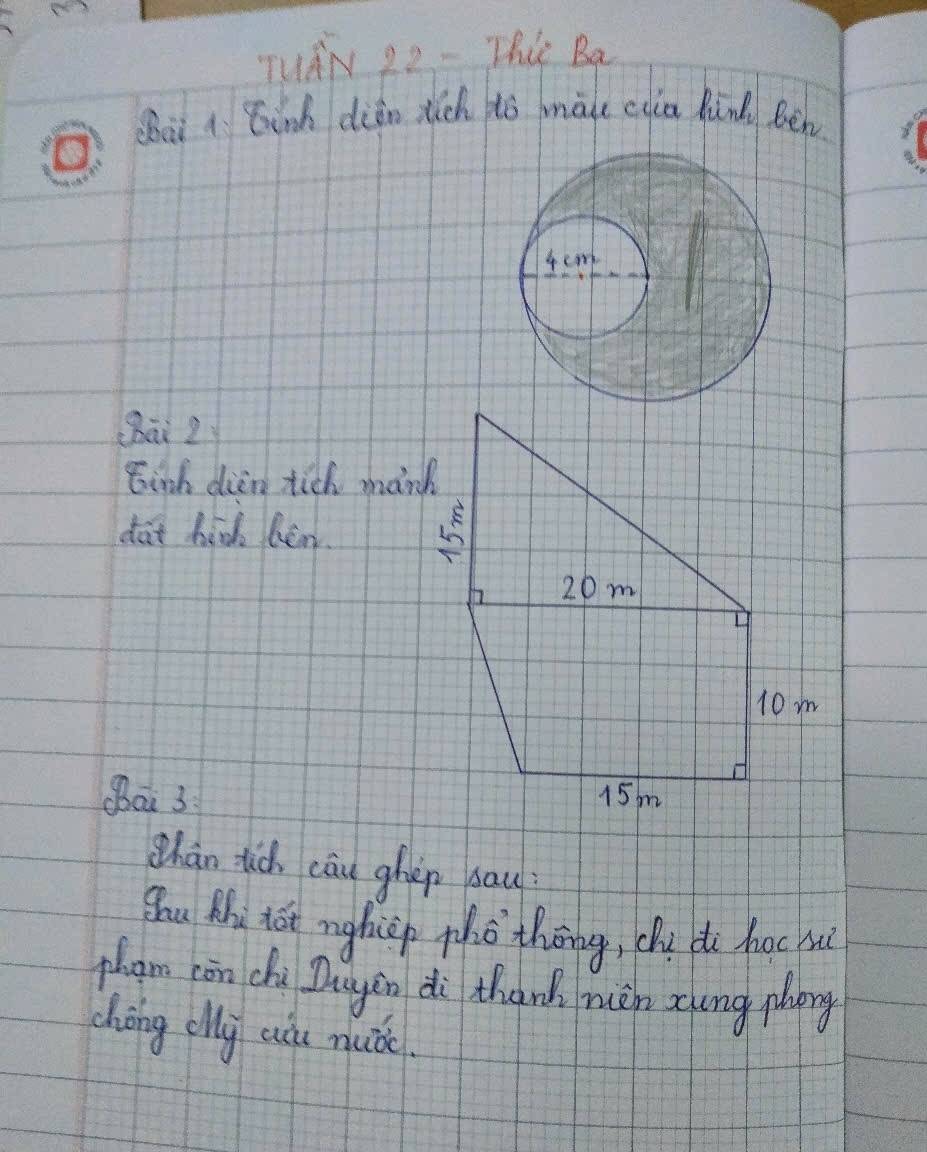 TUẦN 22 - Thứ Ba
Bài 1: Tính diện tích tô màu của hình bên
4 cm
Bài 2:
Tính diện tích mảnh
đất hình bên.
15m
20 m
10 m
15m
Bài 3:
Phân tích câu ghép sau:
Sau khi tốt nghiệp phổ thông, chị đi học sư
phạm còn chị Duyên đi thanh niên xung phong
chống Mỹ cứu nước.